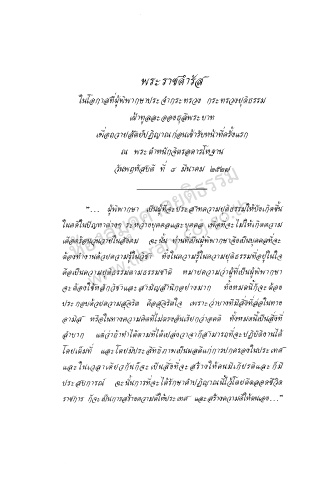 พระราชดำรัส
ในโอกาสที่ผู้พิพากษาประจำกระทรวง กระทรวงยุติธรรม
เฝ้าทูลละอองธุลีพระบาท
เพื่อถวายสัตย์ปฏิญาณก่อนเข้ารับหน้าที่ครั้งแรก
ณ พระตำหนักจิตรลดารโหฐาน
วันพฤหัสบดี ที่ ๘ มีนาคม ๒๕๒๗
"... ผู้พิพากษา เป็นผู้ที่จะประสาทความยุติธรรมให้บังเกิดขึ้น
ในคดีในปัญหาต่างๆ ระหว่างบุคคลและบุคคล เพื่อที่จะไม่ให้เกิดความ
เดือดร้อนวุ่นวายในสังคม ฉะนั้น ท่านที่เป็นผู้พิพากษาจึงเป็นบุคคลที่จะ
ต้องทำงานด้วยความรู้ในวิชา ทั้งในความรู้ในความยุติธรรมที่อยู่ในใจ
คือเป็นความยุติธรรมตามธรรมชาติ หมายความว่าผู้ที่เป็นผู้พิพากษา
จะต้องใช้หลักวิชาและสามัญสำนึกอย่างมาก ทั้งหมดนี้ก็จะต้อง
ประกอบด้วยความสุจริต คือสุจริตใจ เพราะว่าบางทีมีสิ่งที่ล่อในทาง
อามิส หรือในทางความคิดที่ไม่ตรงอันเรียกว่าอคติ ทั้งหมดนี้เป็นสิ่งที่
ลำบาก แต่ว่าถ้าทำได้ตามที่ได้เปล่งวาจาก็สามารถที่จะปฏิบัติงานได้
โดยเต็มที่ และโดยมีประสิทธิภาพเป็นผลดีแก่การปกครองในประเทศ
และในเวลาเดียวกันก็จะ เป็นสิ่งที่จะสร้างให้ตนมีเกียรติและก็มี
ประสบการณ์ ฉะนั้นการที่จะได้รักษาคำปฏิญาณนี้ไว้โดยตลอดชีวิต
ราชการ ก็จะเป็นการสร้างความดีให้ประเทศ และสร้างความดีให้ตนเอง..."